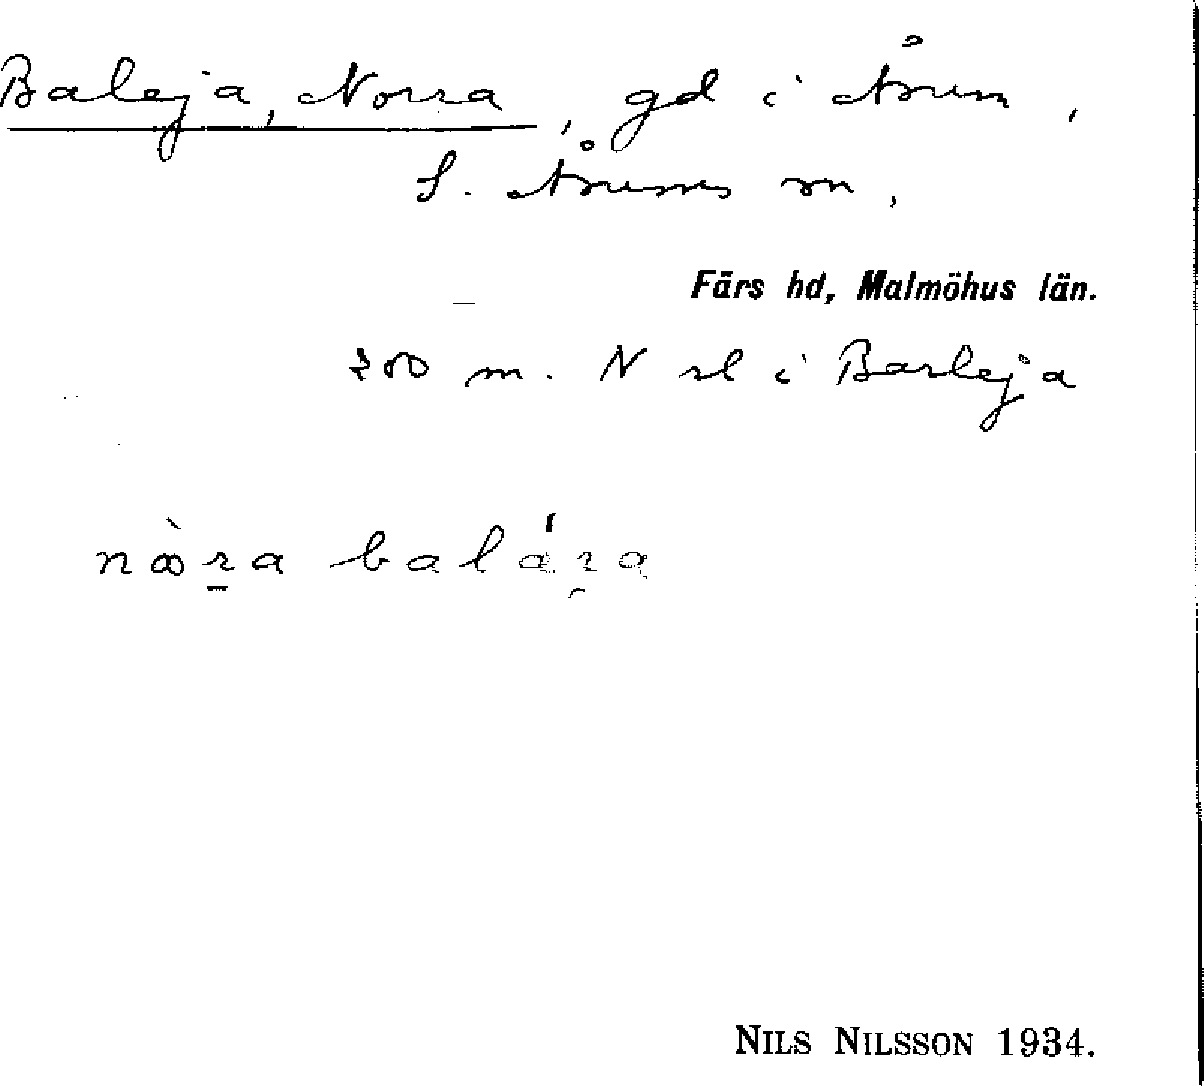 Baleja, Norra, gd i Åsum,
S. Åsums sn,
Färs hd, Malmöhus län.
200 m. N sl i Barleja
Nils Nilsson 1934.